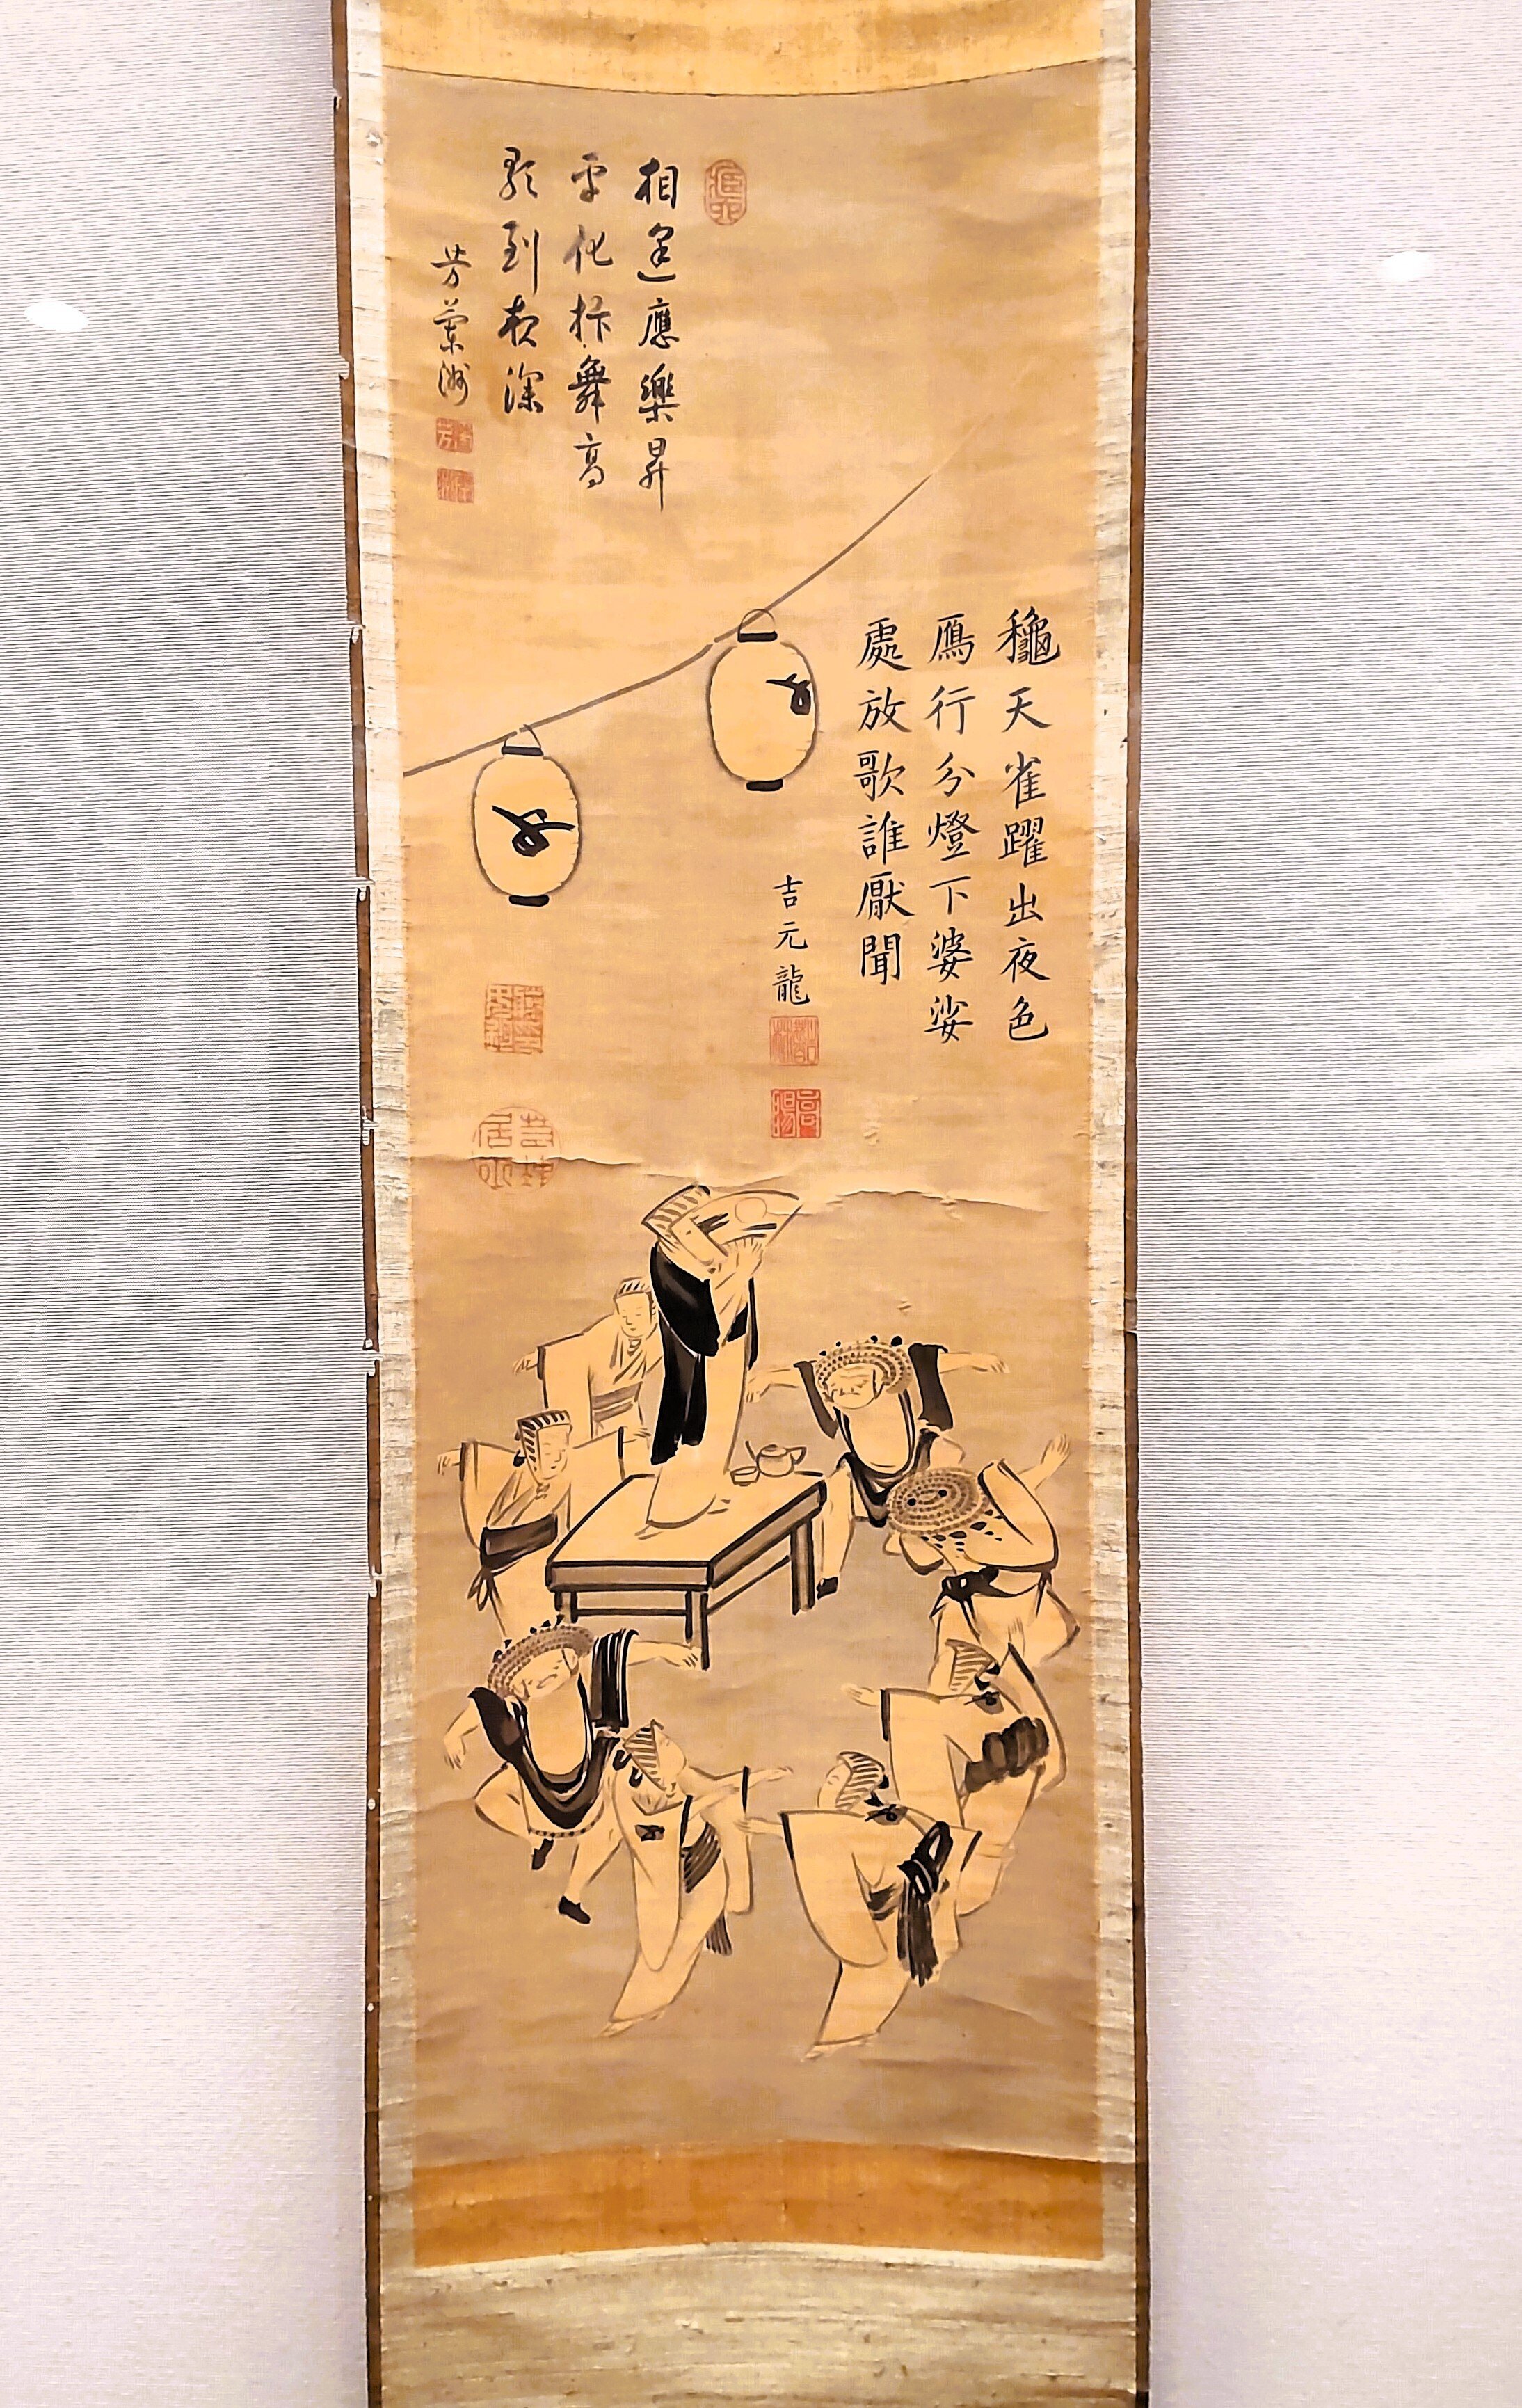 龝天雀躍出夜色
鴈行分燈下婆娑
處放歌誰厭聞
吉元龍
相逢應樂昇
平化抃舞高
歌到夜深
芳蘭洲